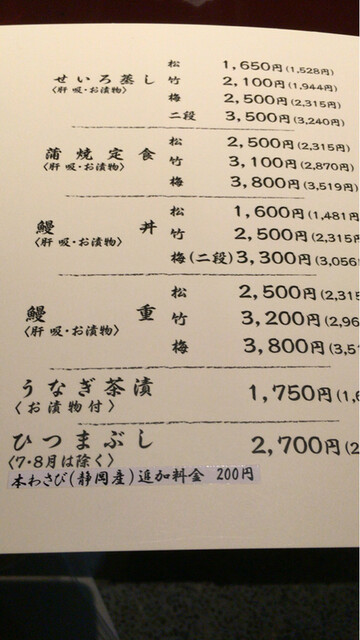 せいろ蒸し 松 1,650円(1,528円)
〈肝吸・お漬物〉 竹 2,100円(1,944円)
梅 2,500円(2,315円)
二段 3,500円(3,240円)
蒲焼定食 松 2,500円(2,315円)
〈肝吸・お漬物〉 竹 3,100円(2,870円)
梅 3,800円(3,519円)
鰻丼 松 1,600円(1,481円
〈肝吸・お漬物〉 竹 2,500円(2,315円
梅(二段) 3,300円(3,056
鰻重 松 2,500円(2,315
〈肝吸・お漬物〉 竹 3,200円(2,96
梅 3,800円(3,5
うなぎ茶漬 1,750円(1,6
〈お漬物付〉
ひつまぶし 2,700円(2
〈7・8月は除く〉
本わさび(静岡産)追加料金 200円